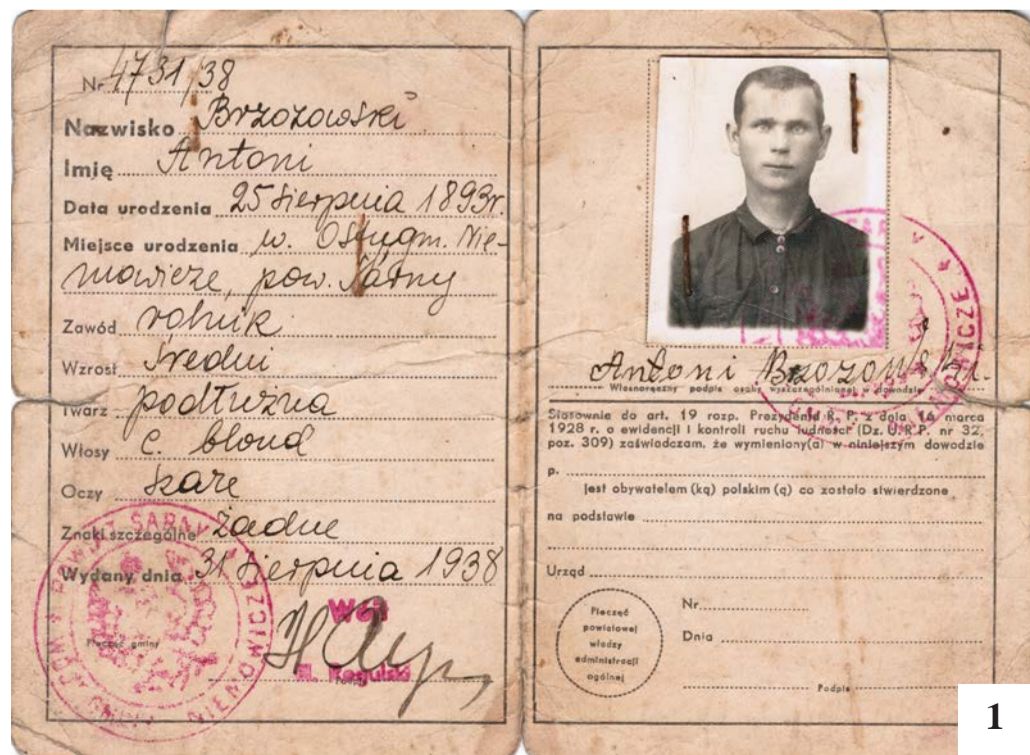 Nr. 4731/38
Nazwisko Brzozowski
Imię Antoni
Data urodzenia 25 sierpnia 1893r.
Miejsce urodzenia w. gm. Nie-
mowicze, pow. Sarny
Zawód rolnik
Wzrost średni
Twarz podłużna
Włosy c. blond
Oczy szare
Znaki szczególne żadne
Wydany dnia 31 sierpnia 1938
Wójt
Pieczęć gminy
Podpis
Antoni Brzozowski
Własnoręczny podpis osoby wyszczególnionej w dowodzie
Stosownie do art. 19 rozp. Prezydenta R. P. z dnia 16 marca
1928 r. o ewidencji i kontroli ruchu ludności (Dz. U. R. P. nr 32,
poz. 309) zaświadczam, że wymieniony(a) w niniejszym dowodzie
p.
jest obywatelem (ką) polskim (ą) co zostało stwierdzone
na podstawie
Urząd
Pieczęć
powiatowej
władzy
administracji
ogólnej
Nr.
Dnia
Podpis
1